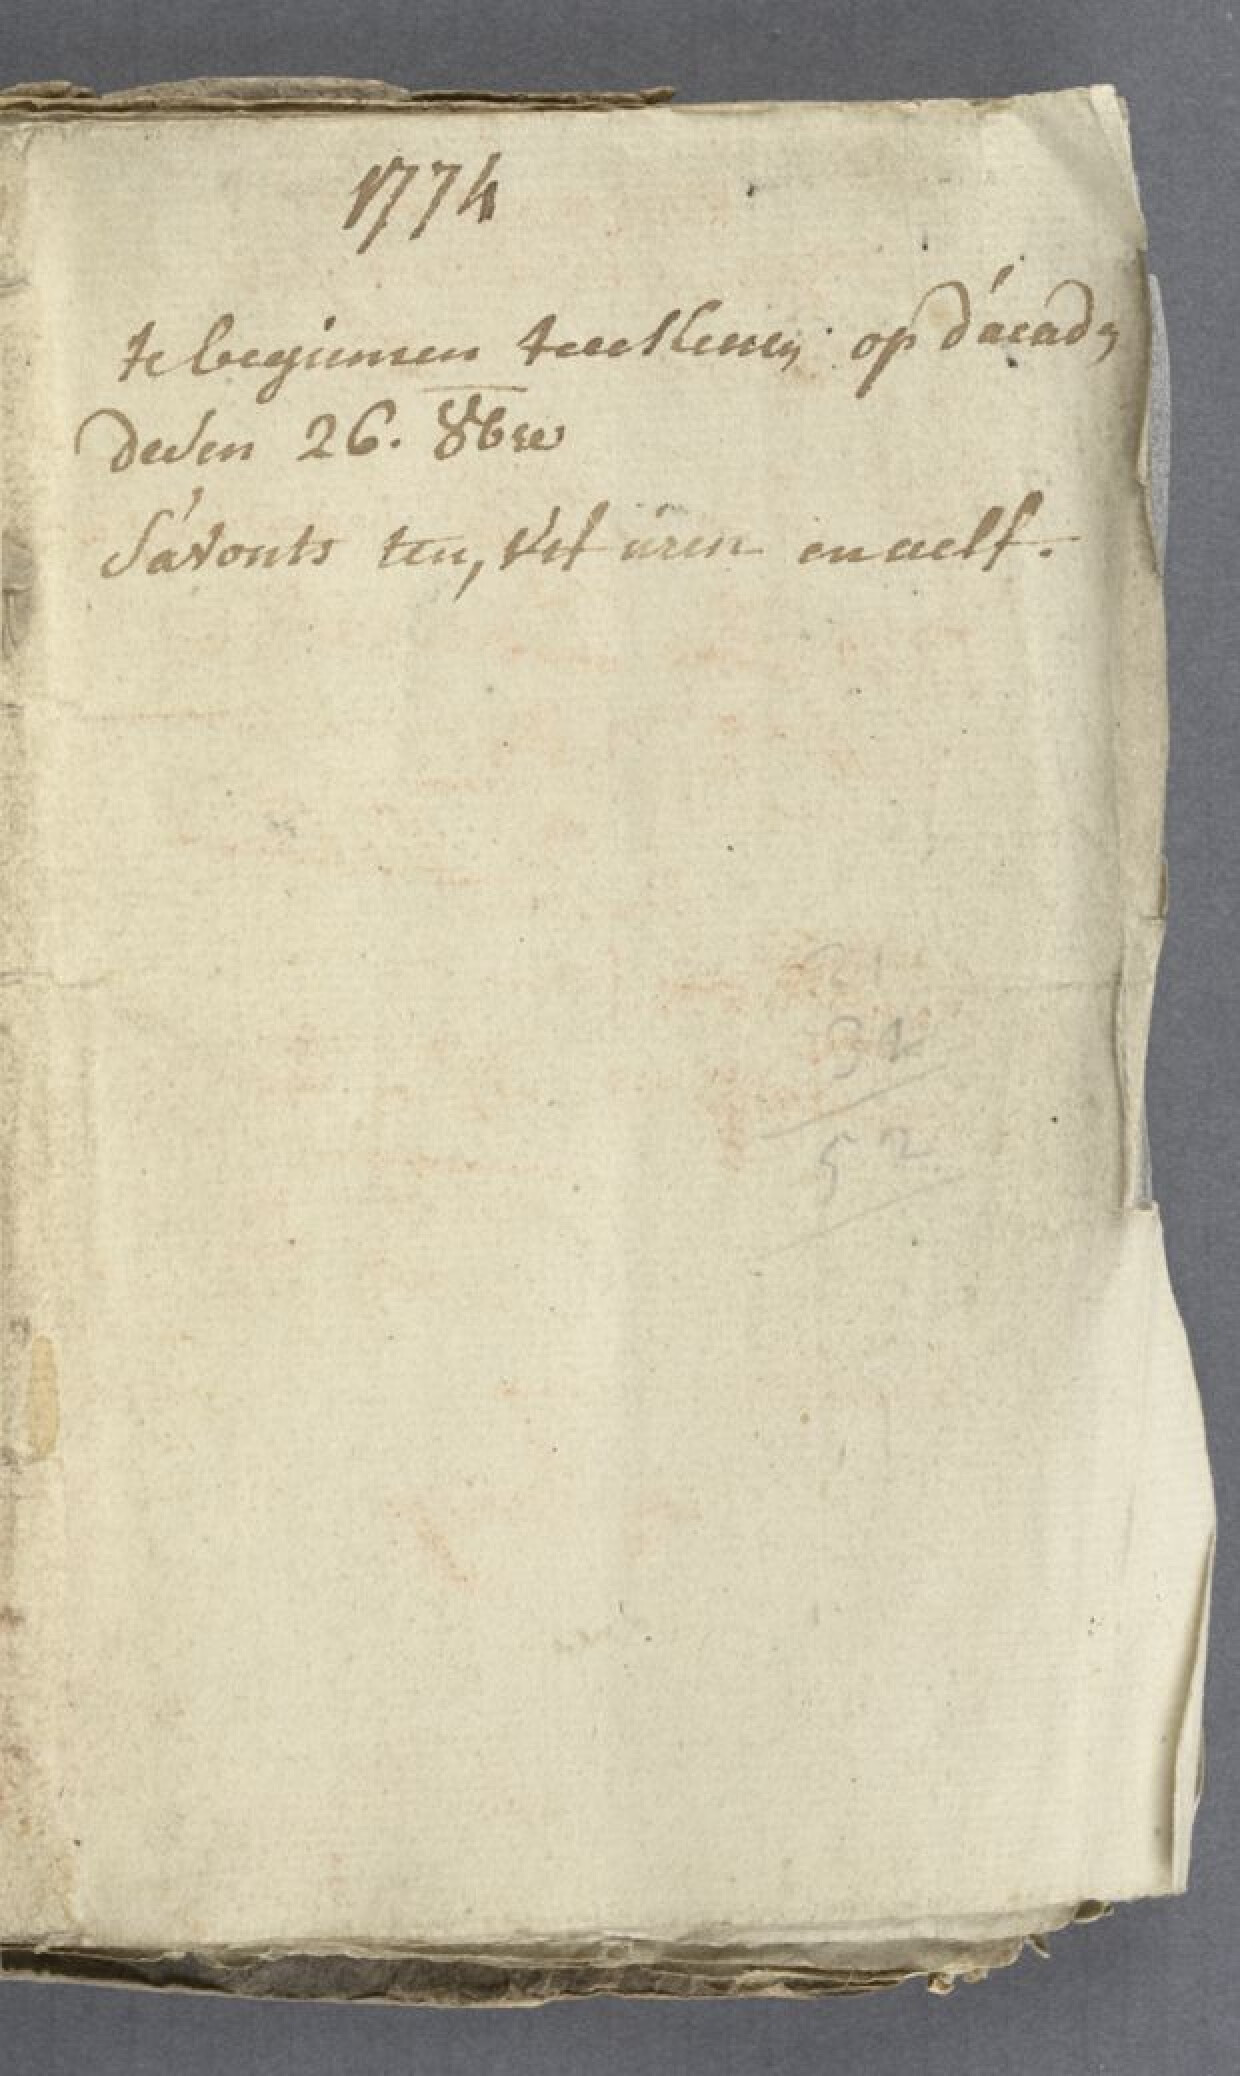 1774
te beginnen teeckenen op d'acad,
deden 26. 8bre
s'avonts ten, vÿf uren en aelf.
31
52